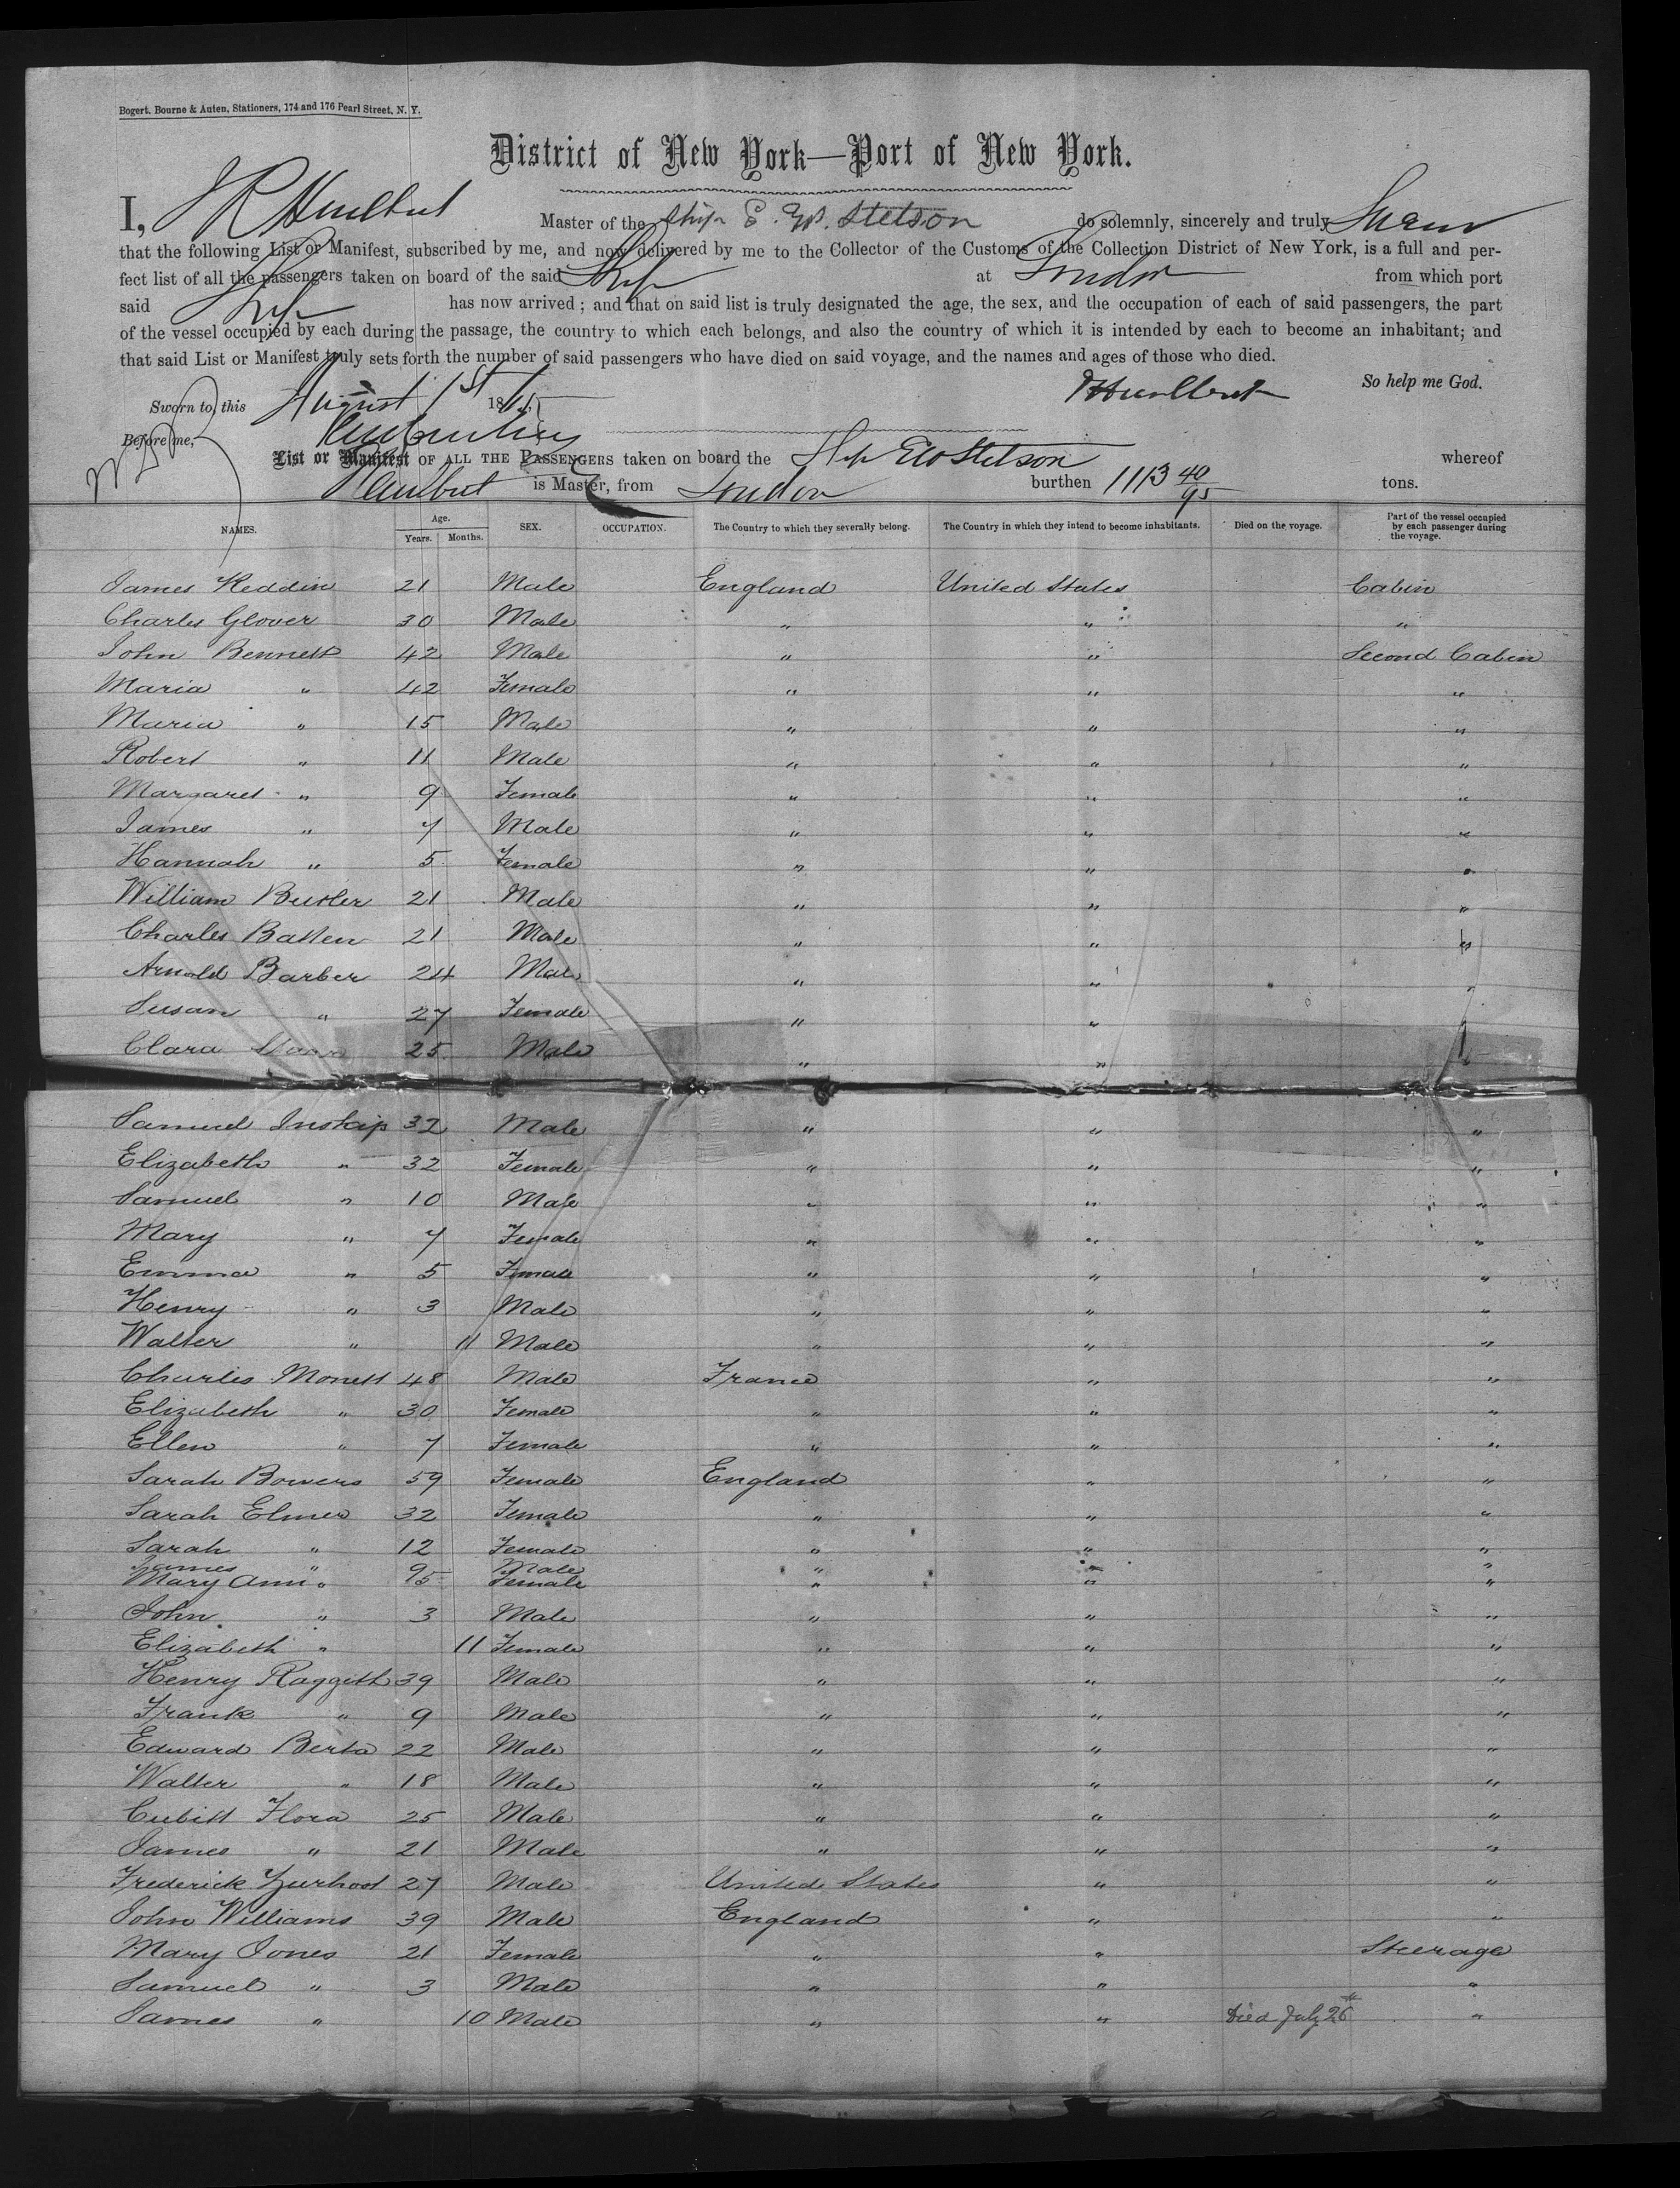 Bogert, Bourne & Auten, Stationers, 174 and 176 Pearl Street, N. Y.
District of New York—Port of New York.
I, J R Hurlbut Master of the Ship E. W. Stetson do solemnly, sincerely and truly Swear
that the following List or Manifest, subscribed by me, and now delivered by me to the Collector of the Customs of the Collection District of New York, is a full and per-
fect list of all the passengers taken on board of the said Ship at London from which port
said Ship has now arrived; and that on said list is truly designated the age, the sex, and the occupation of each of said passengers, the part
of the vessel occupied by each during the passage, the country to which each belongs, and also the country of which it is intended by each to become an inhabitant; and
that said List or Manifest truly sets forth the number of said passengers who have died on said voyage, and the names and ages of those who died.
So help me God.
Sworn to, this August 1st 1865 J Hurlbut
Before me,
List or Manifest OF ALL THE PASSENGERS taken on board the Ship E W Stetson whereof
Hurlbut is Master, from London burthen 1113 40/95 tons.
NAMES. Age. Years. Months. SEX. OCCUPATION. The Country to which they severally belong. The Country in which they intend to become inhabitants. Died on the voyage. Part of the vessel occupied by each passenger during the voyage.
James Keddin 21 Male England United States Cabin
Charles Glover 30 Male " " "
John Bennett 42 Male " " Second Cabin
Maria " 42 Female " " "
Maria " 15 Male " " "
Robert " 11 Male " " "
Margaret " 9 Female " " "
James " 7 Male " " "
Hannah " 5 Female " " "
William Butler 21 Male " " "
Charles Batten 21 Male " " "
Arnold Barber 24 Male " " "
Susan " 27 Female " " "
Clara 25 Male " "
Samuel Inskip 32 Male " " "
Elizabeth " 32 Female " " "
Samuel " 10 Male " " "
Mary " 7 Female " " "
Emma " 5 Female " " "
Henry " 3 Male " " "
Walter " 11 Male " " "
Charles Monett 48 Male France " "
Elizabeth " 30 Female " " "
Ellen " 7 Female " " "
Sarah Bowers 59 Female England " "
Sarah Elmer 32 Female " " "
Sarah " 12 Female " " "
James " 9 Male " " "
Mary Ann " 5 Female " " "
John " 3 Male " " "
Elizabeth " 11 Female " " "
Henry Raggett 39 Male " " "
Frank " 9 Male " " "
Edward Berta 22 Male " " "
Walter " 18 Male " " "
Cubitt Flora 25 Male " " "
James " 21 Male " " "
Frederick Zurhost 27 Male United States " "
John Williams 39 Male England " "
Mary Jones 21 Female " " Steerage
Samuel " 3 Male " " "
James " 10 Male " " Died July 26th "